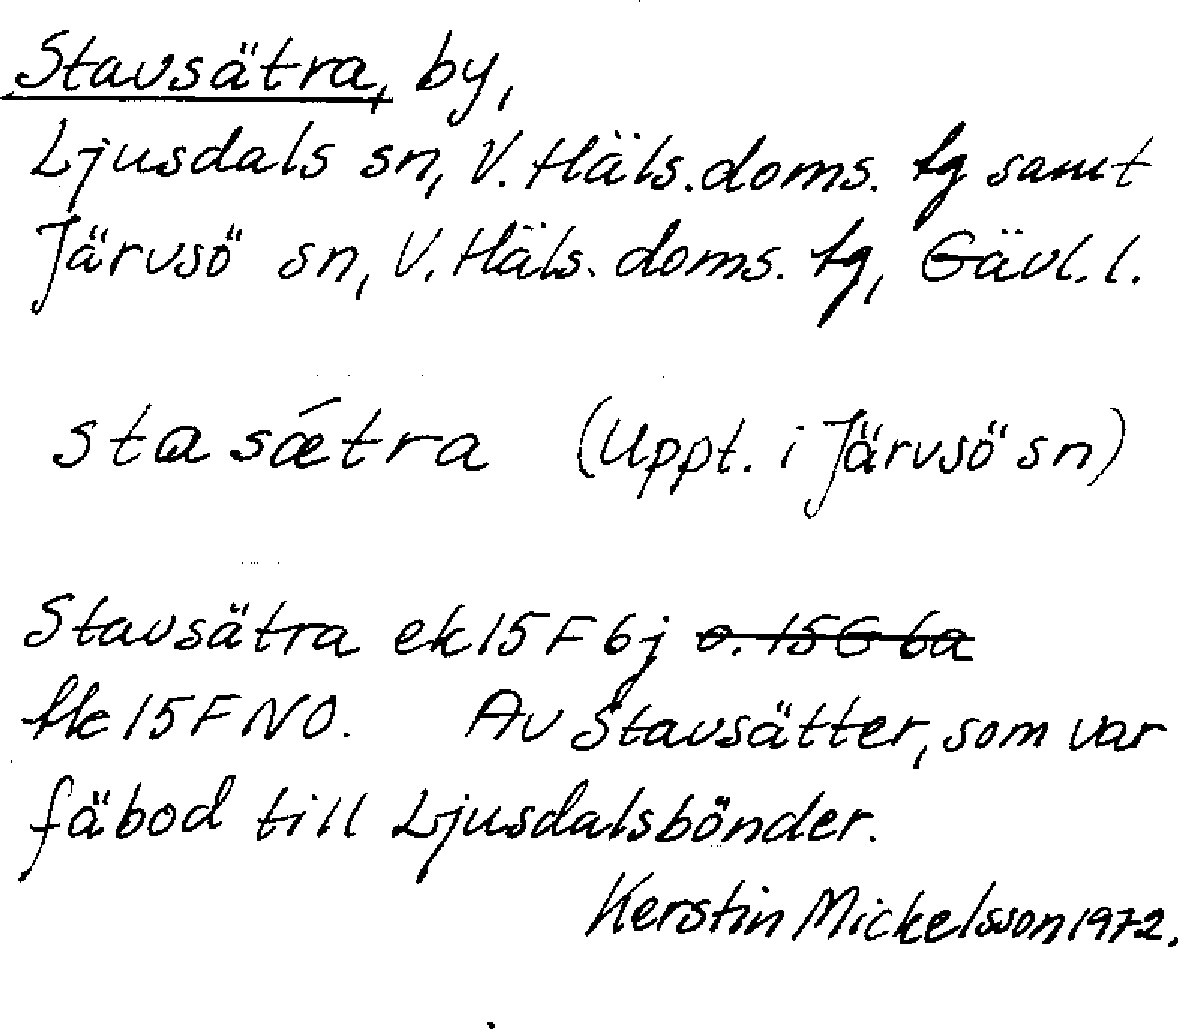 Stavsätra, by,
Ljusdals sn, V. Häls. doms. tg samt
Järvsö sn, V. Häls. doms. tg, Gävl. l.
stasǽtra (Uppt. i Järvsö sn)
Stavsätra ek 15 F 6j o. 15 G 6a
fk 15 F NO. Av Stavsätter, som var
fäbod till Ljusdalsbönder.
Kerstin Mickelsson 1972.